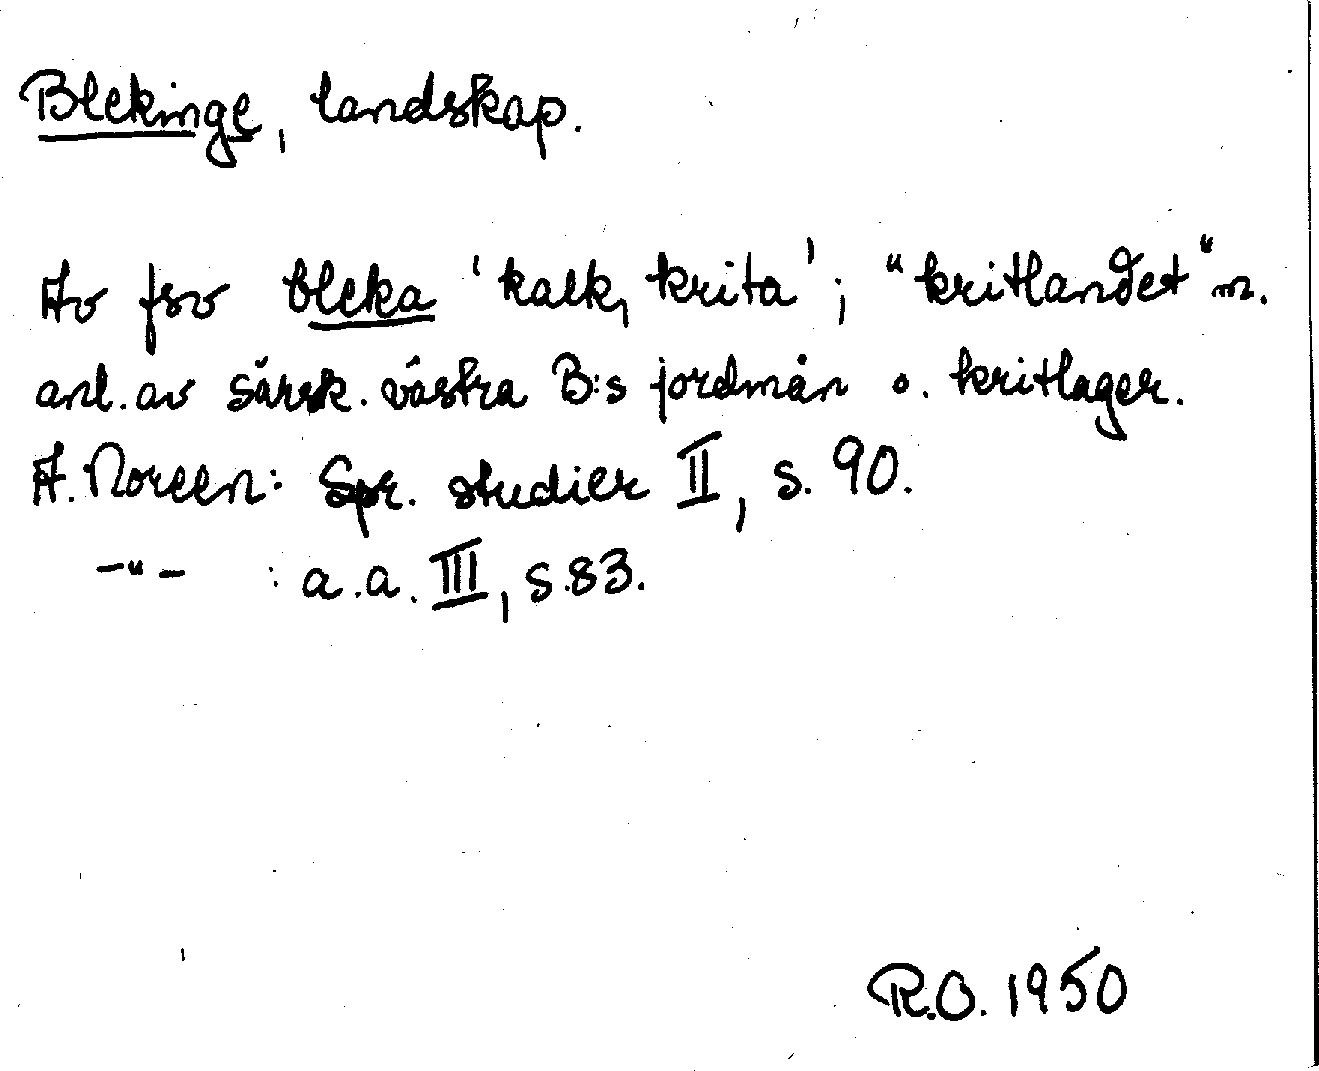 Blekinge, landskap.
Av fsv bleka 'kalk, krita'; "kritlandet" m.
anl. av särsk. västra B:s jordmån o. kritlager.
A. Noreen: Spr. studier II, s. 90.
—"— : a.a. III, s. 83.
R.O. 1950